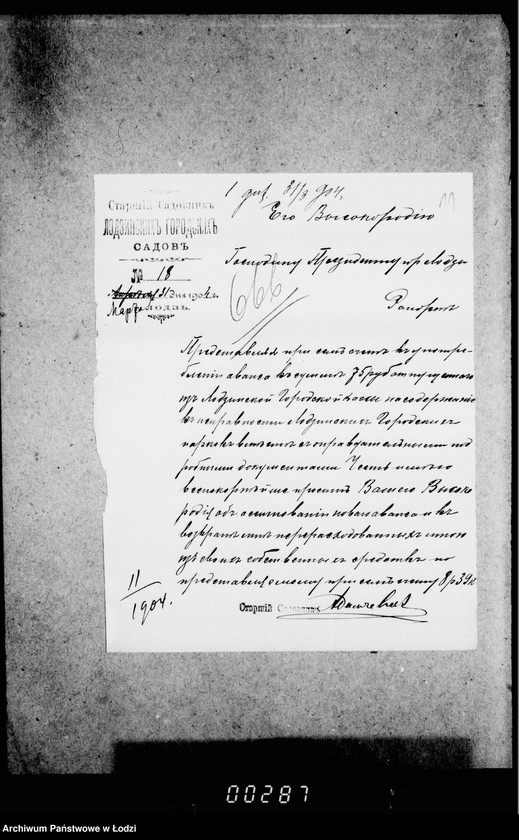 1 дня. 31/3 904.
11
Старшій Садовникъ
ЛОДЗИНСКИХЪ ГОРОДСКИХЪ
САДОВЪ
№ 18
31 Дня 1904 г.
Март Лодзь.
Его Высокородію
Господину Президенту гор Лодзи
666
Рапортъ
Представляя при семъ счетъ къ употре-
бленіи аванса въ суммѣ 75 руб отпущеннаго
изъ Лодзинской Городской кассы на содержаніе
въ исправности Лодзинскихъ Городскихъ
парковъ вмѣстѣ съ оправдательными под
робными документами Честь имѣю
всепокорнѣйше просить Вашего Высоко
родія объ ассигнованіи новаго аванса и въ
возвратѣ мнѣ перерасходованныхъ мною
изъ своихъ собственныхъ средствъ по
представляемому при семъ счету 8 р 39 к
11/1904.
Старшій Садовникъ
Archiwum Państwowe w Łodzi
00287